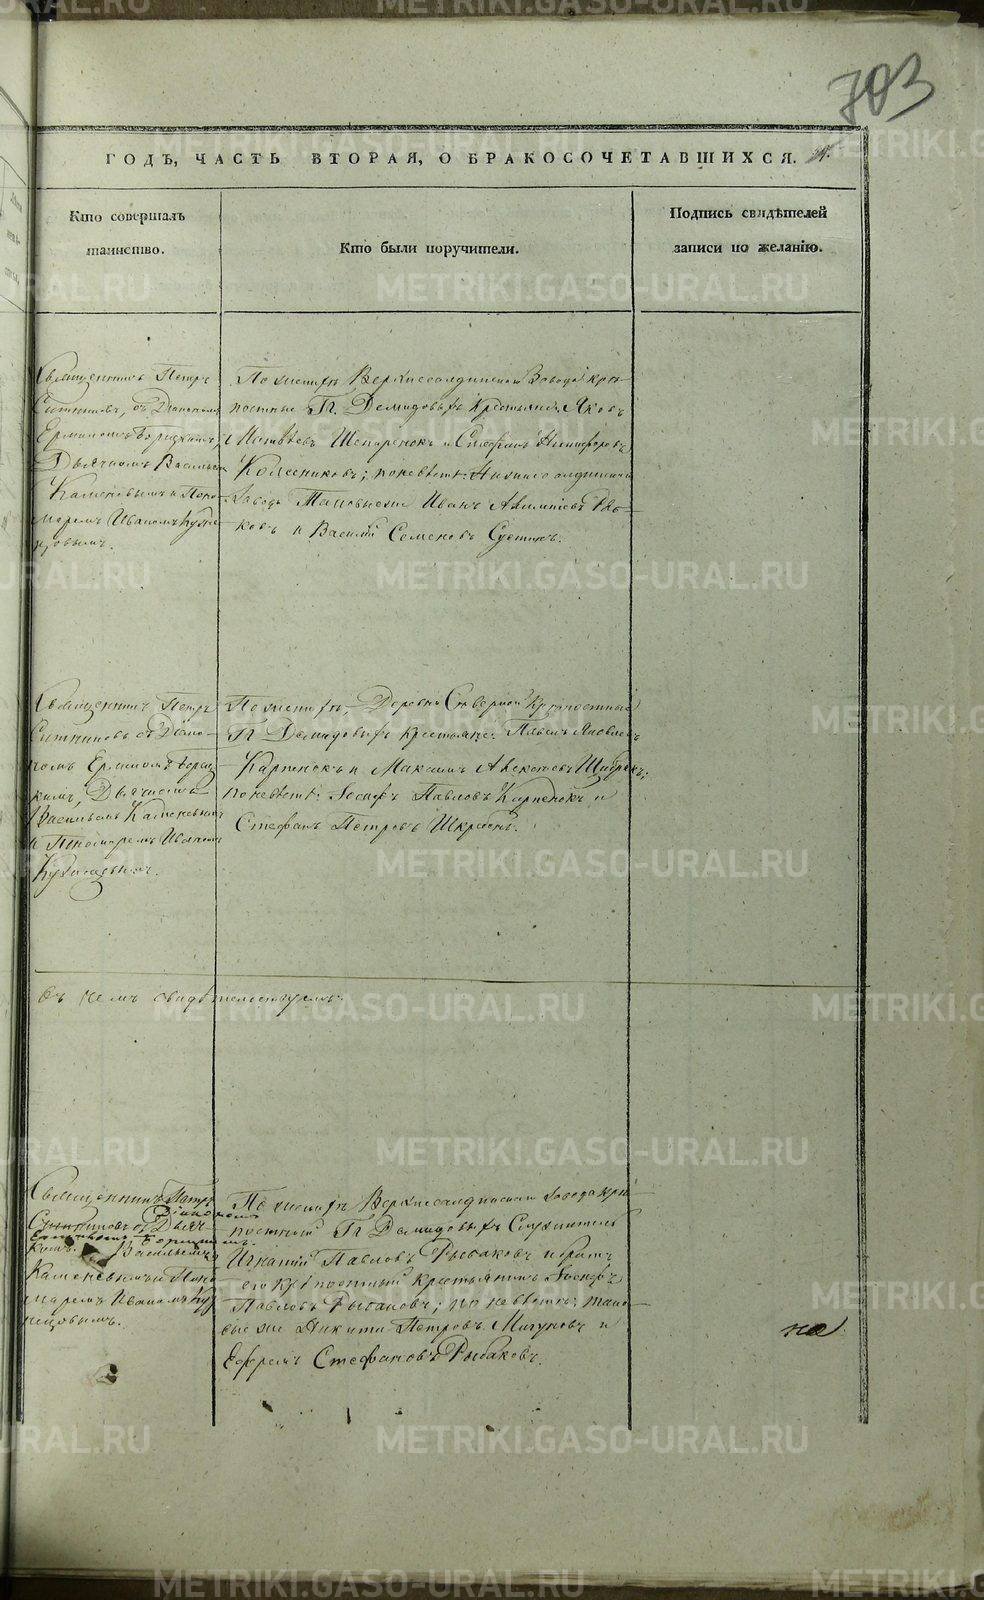 703
ГОДЪ, ЧАСТЬ ВТОРАЯ, О БРАКОСОЧЕТАВШИХСЯ.
Кто совершалъ
таинство.
Кто были поручители.
Подпись свидѣтелей
записи по желанію.
Священникъ Петръ
Ситниковъ, съ Діакономъ
Ермиломъ
Дьячкомъ Васильемъ
Каменевымъ и Поно-
маремъ Иваномъ Кузне-
цовымъ.
По женихѣ Верхнесалдинскаго Завода крѣ-
постные Гг. Демидовыхъ крестьяне: Яковъ
Матвѣевъ и Стефанъ Никифоровъ
Колесниковъ; по невѣстѣ: Нижнесалдинскаго
Завода Таковыеже Иванъ
и Василій Семеновъ
Священникъ Петръ
Ситниковъ съ Діяко-
номъ Ермиломъ
Дьячкомъ
Васильемъ Каменевымъ
и Пономаремъ Иваномъ
Кузнецовымъ.
По женихѣ, Деревни Сѣверной Крѣпостные
Гг. Демидовыхъ крестьяне: Павелъ Яковлевъ
Карпенокъ и Максимъ Алексѣевъ
по невѣстѣ: Іосифъ Павловъ Карпенокъ и
Стефанъ Петровъ
въ чемъ свидѣтельствуемъ.
Священникъ Петръ
Діакономъ
Ситниковъ съ Дьяч-
комъ Васильемъ
Каменевымъ и Поно-
маремъ Иваномъ Куз-
нецовымъ.
По женихѣ Верхнесалдинскаго завода крѣ-
постный Гг. Демидовыхъ Служитель
Игнатій Павловъ Рыбаковъ и братъ
его крѣпостный крестьянинъ Іосифъ
Павловъ Рыбаковъ; по невѣстѣ: тако-
выеже Никита Петровъ и
Ефремъ Стефановъ Рыбаковъ.
на
METRIKI.GASO-URAL.RU